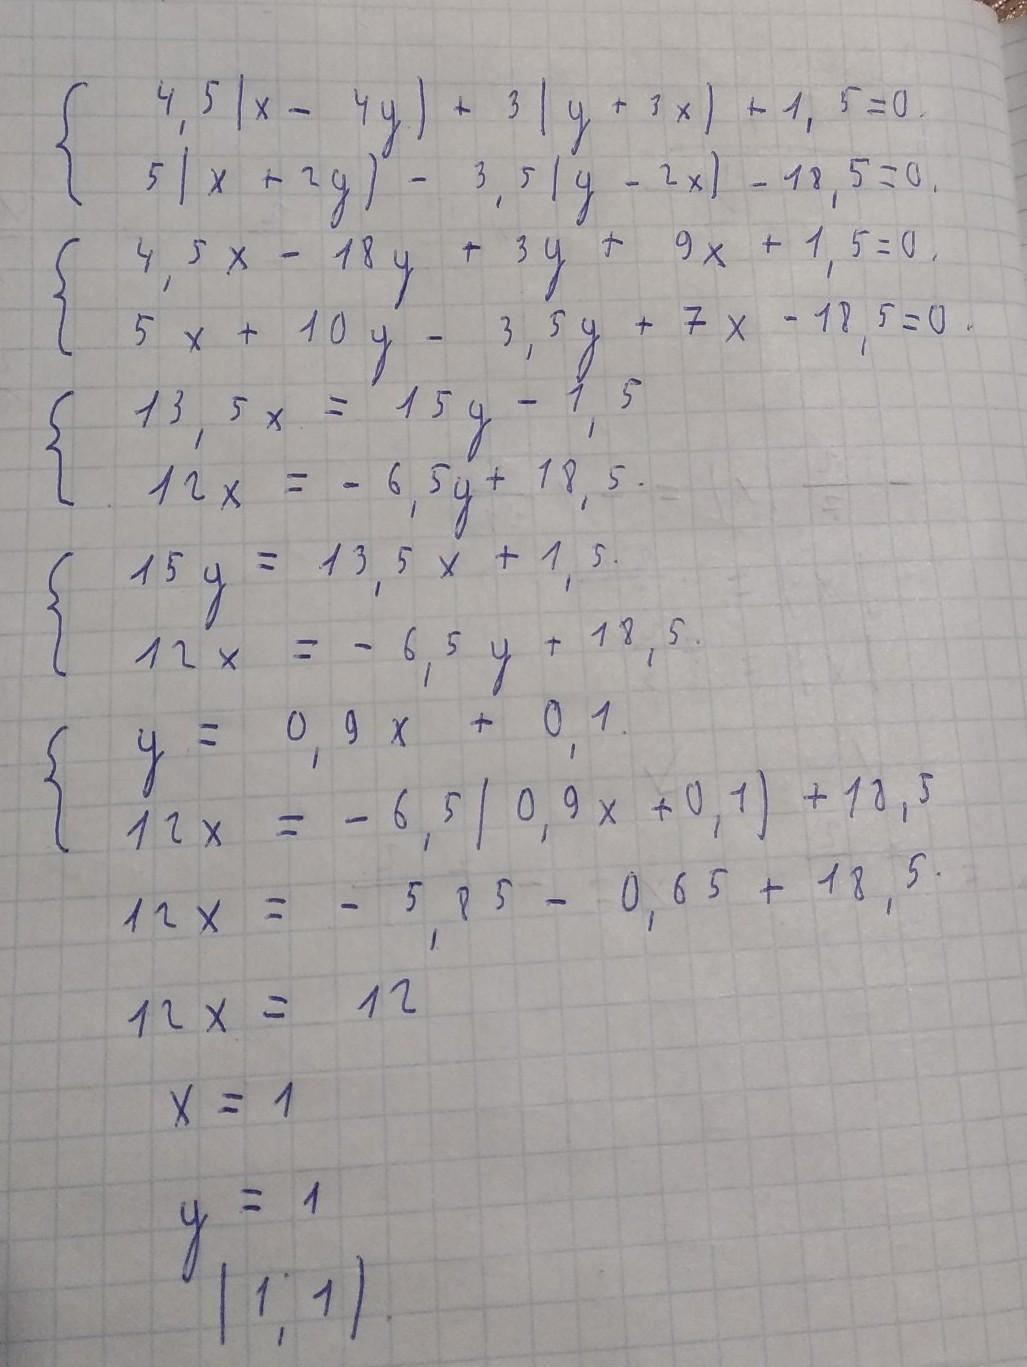 4,5(x - 4y) + 3(y + 3x) + 1,5=0.
5(x + 2y) - 3,5(y - 2x) - 18,5=0.
4,5x - 18y + 3y + 9x + 1,5=0.
5x + 10y - 3,5y + 7x - 18,5=0.
13,5x = 15y - 1,5
12x = - 6,5y + 18,5.
15y = 13,5x + 1,5.
12x = - 6,5y + 18,5.
y = 0,9x + 0,1.
12x = - 6,5(0,9x + 0,1) + 18,5
12x = - 5,85 - 0,65 + 18,5.
12x = 12
x = 1
y = 1
(1, 1).